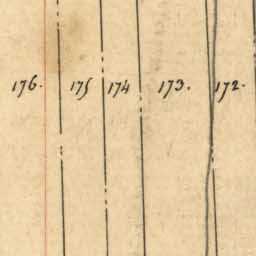 176. 175 174 173. 172.